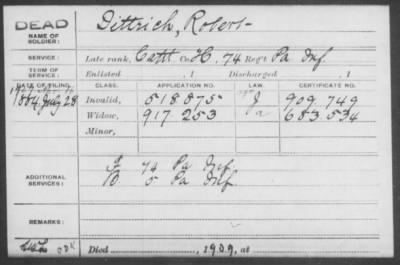 DEAD
NAME OF SOLDIER:
Dittrich, Robert
SERVICE:
Late rank, Capt Co. H, 74 Reg't Pa Inf.
TERM OF SERVICE:
Enlisted , 1 Discharged , 1
DATE OF FILING. CLASS. APPLICATION NO. LAW. CERTIFICATE NO.
1884 July 28 Invalid, 518875 909,749
Widow, 917 253 683 534
Minor,
ADDITIONAL SERVICES:
74 Pa Inf
5 Pa Inf
REMARKS:
Died , 1909, at